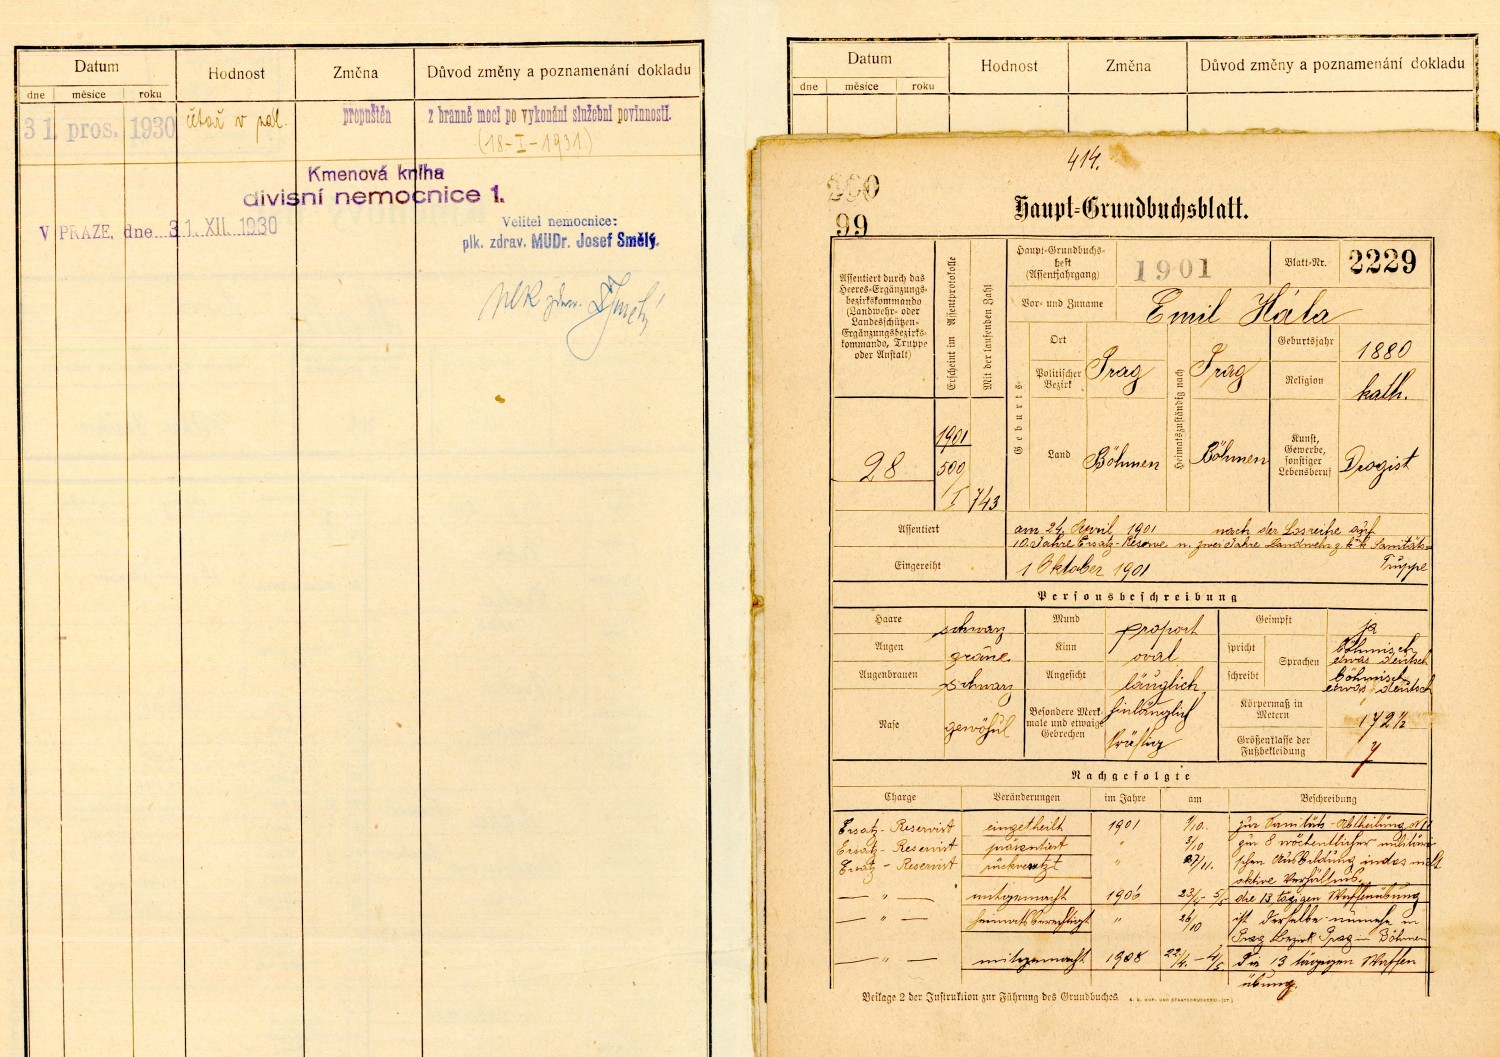 Datum Hodnost Změna Důvod změny a poznamenání dokladu
dne měsíce roku
31. pros. 1930 účtař v pol. propuštěn z branné moci po vykonání služební povinnosti.
(18-I-1931.)
Kmenová kniha
divisní nemocnice 1.
V PRAZE, dne 31. XII. 1930
Velitel nemocnice:
plk. zdrav. MUDr. Josef Smělý.
plk zdrav. Smělý
Datum Hodnost Změna Důvod změny a poznamenání dokladu
dne měsíce roku
414.
200
99
Haupt=Grundbuchsblatt.
Assentiert durch das
Heeres-Ergänzungs-
bezirkskommando
(Landwehr- oder
Landesschützen-
Ergänzungsbezirks-
kommando, Truppe
oder Anstalt)
Erscheint im Assentprotokolle
Mit der laufenden Zahl
28
1901
500
I 743
Haupt-Grundbuchs-
heft
(Assentjahrgang)
1901
Blatt-Nr. 2229
Vor- und Zuname Emil Hála
Geburts-
Ort
Politischer
Bezirk
Prag
Land Böhmen
Heimatszuständig nach
Prag
Böhmen
Geburtsjahr 1880
Religion kath.
Kunst,
Gewerbe,
sonstiger
Lebensberuf
Drogist
Assentiert am 24 April 1901 nach der Losreihe auf
10 Jahre Ersatz-Reserve u. zwei Jahre Landwehr z. k.k. Sanitäts-
Truppe
Eingereiht 1 Oktober 1901
Personsbeschreibung
Haare schwarz Mund proport Geimpft ja
Augen graue Kinn oval spricht Sprachen böhmisch
etwas deutsch
Augenbrauen schwarz Angesicht länglich schreibt böhmisch
etwas deutsch
Nase gewöhnl Besondere Merk-
male und etwaige
Gebrechen
hinlänglich
kräftig
Körpermaß in
Metern
172½
Größenklasse der
Fußbekleidung
7
Nachgefolgte
Charge Veränderungen im Jahre am Beschreibung
Ersatz-Reservist eingetheilt 1901 1/10. zur Sanitäts-Abtheilung N 11
Ersatz-Reservist präsentiert " 3/10 zur 8 wöchentlicher militäri
Ersatz-Reservist rückversetzt " 27/11. schen Ausbildung in das nicht
aktive Verhältnis.
— " — mitgemacht 1906 23/4 - 5/5 die 13 tägigen Waffenübung
— " — heimatsberechtigt " 26/10 ist derselbe nunmehr in
Prag Bezirk Prag in Böhmen
— " — mitgemacht 1908 22/4. - 4/5 die 13 tägigen Waffen
übung.
Beilage 2 der Instruktion zur Führung des Grundbuches. K. K. HOF- UND STAATSDRUCKEREI.